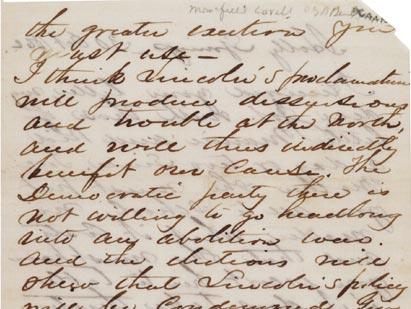 the greater exertion you
must use —
I think Lincoln's proclamation
will produce dissensions
and trouble at the North,
and will thus indirectly
benefit our cause. The
Democratic party there is
not willing to go headlong
into any abolition war.
and the elections will
show that Lincoln's policy
will be Condemned